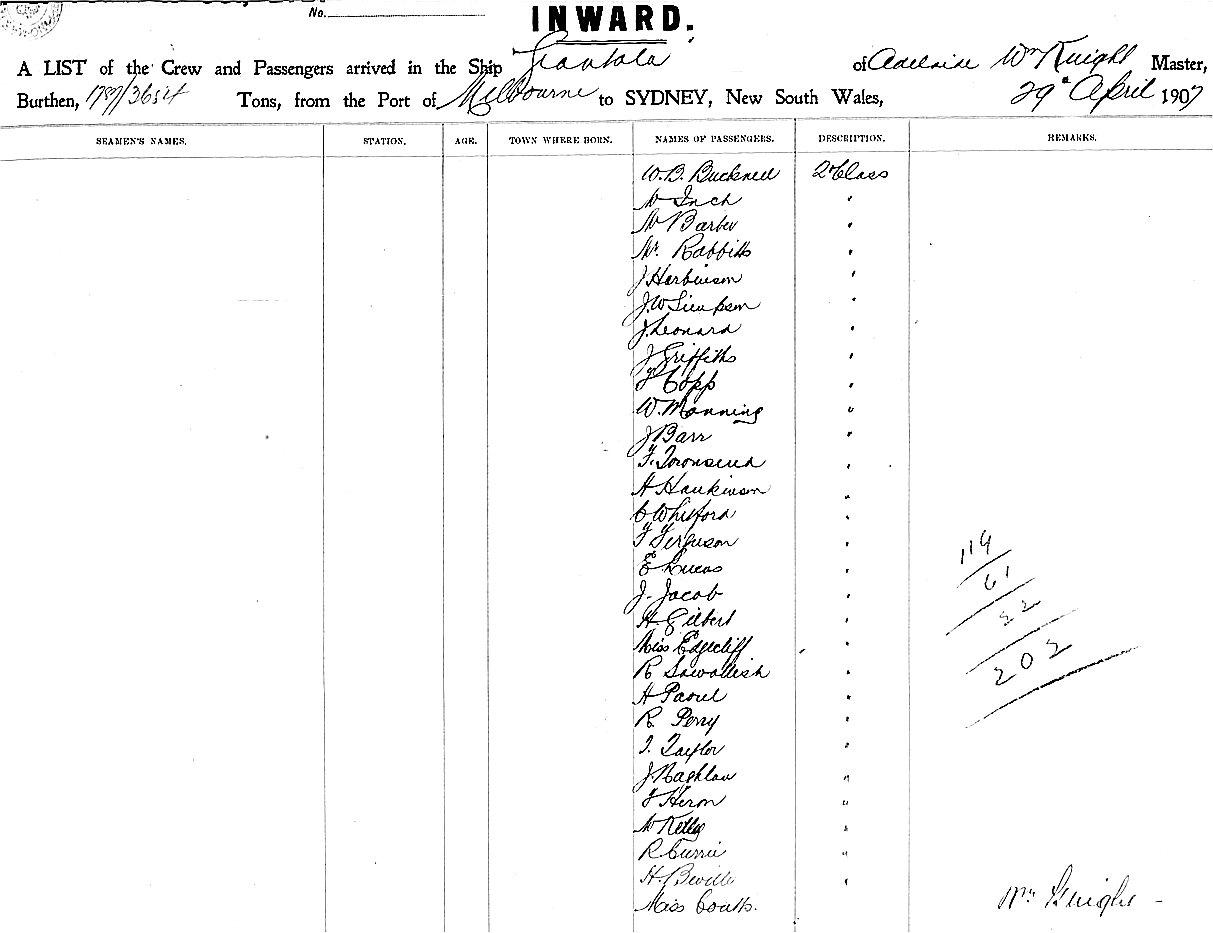 No.
INWARD.
A LIST of the Crew and Passengers arrived in the Ship Grantala of Adelaide Wm Knight Master,
Burthen, 1787/3654 Tons, from the Port of Melbourne to SYDNEY, New South Wales, 29th April 1907
SEAMEN'S NAMES. STATION. AGE. TOWN WHERE BORN. NAMES OF PASSENGERS. DESCRIPTION. REMARKS.
W. B. Bucknell 2 Class
Mr Inch "
Mr Barber "
Mr. Rabbitts "
J Harbinson "
J. W Simpson "
J. Leonard "
J Griffiths "
F Copp "
W. Manning "
J Barr "
F. Townsend "
H Hankinson "
C Whitford "
F Ferguson "
E Lucas "
J. Jacob "
H. Gilbert "
Miss Edgecliff "
R Sawallish "
H "
R. Perry "
T. Taylor "
J "
F Heron "
W Kelly "
R Currie "
H. Beville "
Miss Coutts.
119
61
22
202
Wm Knight